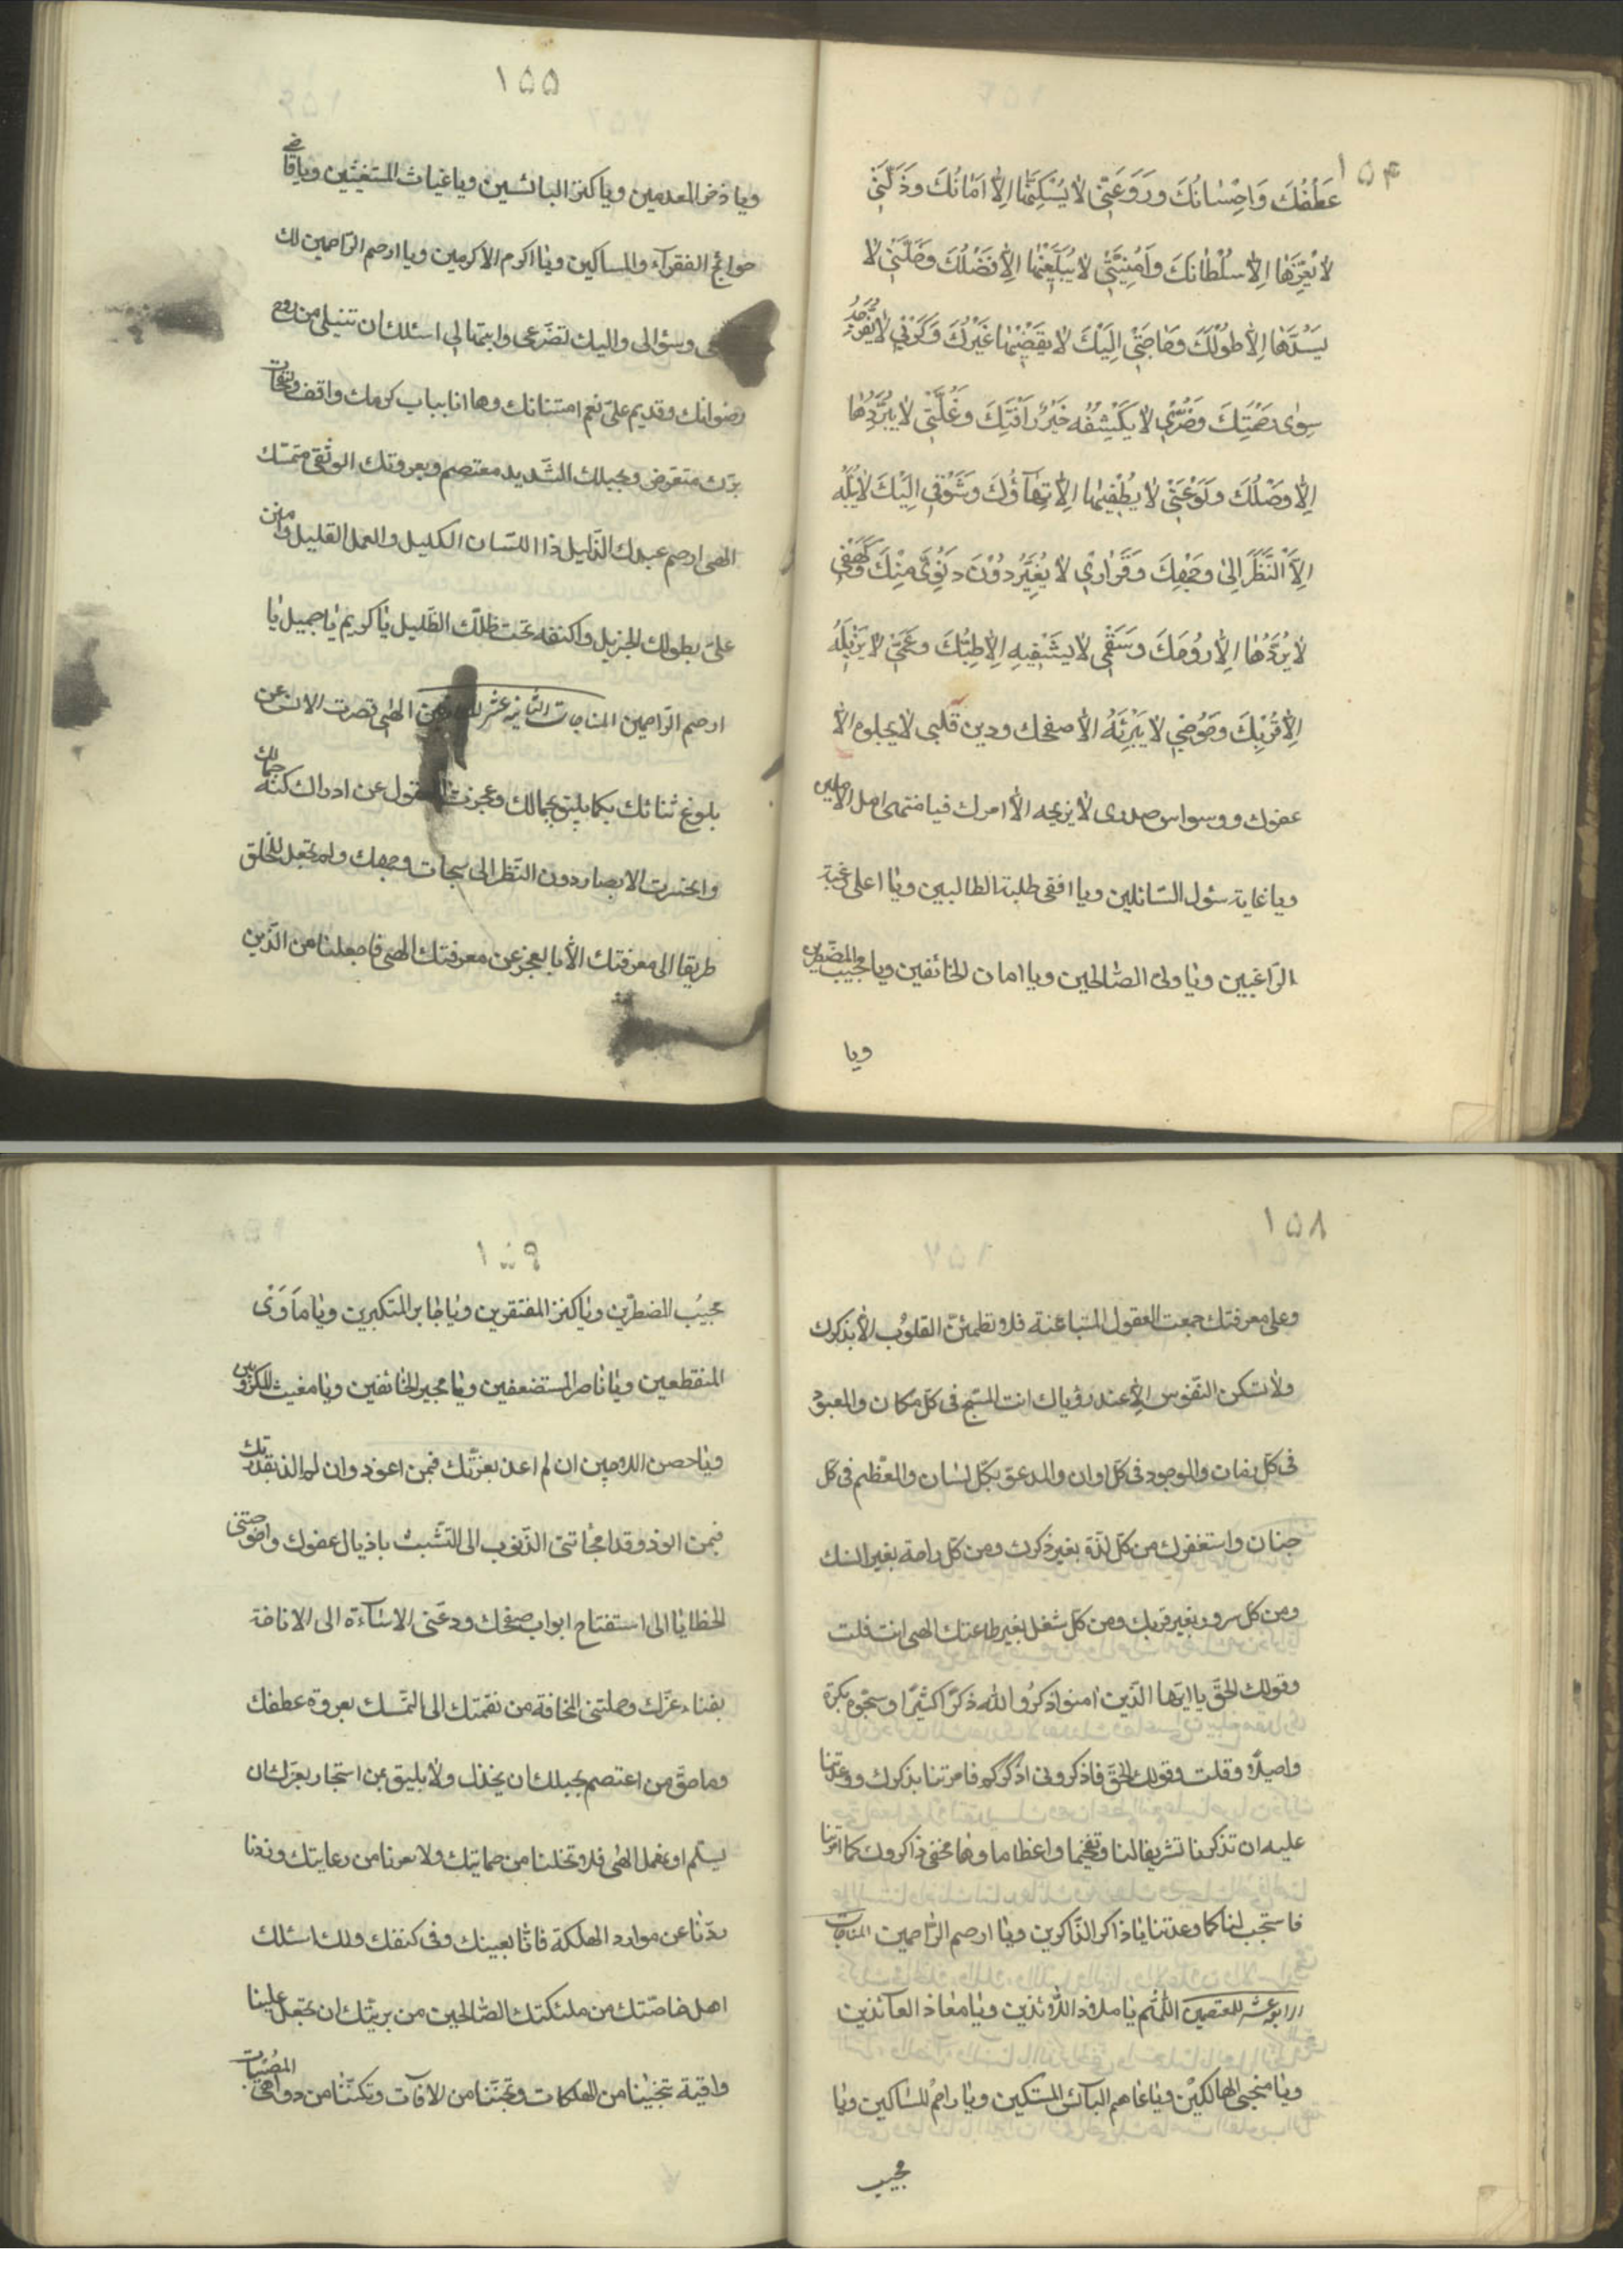 ١٥٤
عَطْفُكَ وَاِحْسٰانُكَ وَرَوْعَتٖى لاٰ يُسَكِّنُهٰا اِلاّٰ اَمٰانُكَ وَذِلَّتٖى
لاٰ يُعِزُّهٰا اِلاّٰ سُلْطٰانُكَ وَاُمْنِيَّتٖى لاٰ يُبَلِّغُنٖيهٰا اِلاّٰ فَضْلُكَ وَخَلَّتٖى لاٰ
يَسُدُّهٰا اِلاّٰ طَوْلُكَ وَحٰاجَتٖى اِلَيْكَ لاٰ يَقْضٖيهٰا غَيْرُكَ وَكَرْبٖى لاٰ يُفَرِّجُهُ
سِوٰى رَحْمَتِكَ وَضُرّٖى لاٰ يَكْشِفُهُ غَيْرُ رَأْفَتِكَ وَغُلَّتٖى لاٰ يُبَرِّدُهٰا
اِلاّٰ وَصْلُكَ وَلَوْعَتٖى لاٰ يُطْفٖيهٰا اِلاّٰ لِقٰآؤُكَ وَشَوْقٖى اِلَيْكَ لاٰ يَبُلُّهُ
اِلاَّ النَّظَرُ اِلىٰ وَجْهِكَ وَقَرٰارٖى لاٰ يَقِرُّ دُوْنَ دُنُوّٖى مِنْكَ وَلَهْفَتٖى
لاٰ يَرُدُّهٰا اِلاّٰ رَوْحُكَ وَسَقَمٖى لاٰ يَشْفٖيهِ اِلاّٰ طِبُّكَ وَغَمّٖى لاٰ يُزٖيلُهُ
اِلاّٰ قُرْبُكَ وَجُرْحٖى لاٰ يُبْرِئُهُ الاّٰ صفحك ورين قلبى لا يجلوه الاّٰ
عفوك ووسواس صدرى لاٰ يزيحه الاّٰ امرك فيا منتهى امل الاٰملين
ويا غاية سئول السّائلين ويا اقصى طلبة الطالبين ويٰا اعلى رغبة
الرّاغبين ويٰا ولىّ الصّالحين ويا امان الخائفين ويا مجيب المضطرين
ويا
١٥٥
ويا ذخر المعدمين ويا كنز البائسين ويا غياث المستغيثين ويا قاضى
حوائج الفقرآء والمساكين ويٰا اكرم الاكرمين ويا ارحم الرّاحمين لك
وسؤالى واليك تضرّعى وابتهالى اسئلك ان تنيلنى من روح
رضوانك وتديم علىّ نعم امتنانك وها انا بباب كرمك واقف ولنفحات
برّك متعرض وبحبلك الشّديد معتصم وبعروتك الوثقى متمسّك
الهى ارحم عبدك الذّليل ذا اللسّان الكليل والعمل القليل وامنن
علىّ بطولك الجزيل واكنفه تحت ظلّك الظّليل يٰا كريم يٰا جميل يٰا
ارحم الرّاحمين المناجات الثانية عشر الهى قصرت الالسن عن
بلوغ ثنائك كما يليق بجمالك وعجزت العقول عن ادراك كنه جمالك
وانحسرت الابصار دون النّظر الى سبحات وجهك ولم تجعل للخلق
طريقا الى معرفتك الاّٰ بالعجز عن معرفتك الهى فاجعلنا من الّذين
١٥٨
وعلى معرفتك جمعت العقول المتباينة فلا تطمئنّ القلوب الاّٰ بذكرك
ولاٰ تسكن النّفوس الاّٰ عند رؤياك انت المسبّح فى كلّ مكان والمعبود
فى كلّ زمان والموجود فى كلّ اوان والمدعوّ بكلّ لسٰان والمعظّم فى كلّ
جنان واستغفرك من كلّ لذّة بغير ذكرك ومن كلّ راحة بغير انسك
ومن كلّ سرور بغير قربك ومن كلّ شغل بغير طاعتك الهى انت قلت
وقولك الحقّ يا ايّها الّذين امنوا اذكُرُوا الله ذكرًا كثيرًا وسبّحوه بكرة
واصيلاً وقلت وقولك الحقّ فاذكرونى اذكركم فامرتنا بذكرك ووعدتنا
عليه ان تذكرنا تشريفا لنا وتفخيما واعظاما وهٰا نحن ذاكروك كما امرتنا
فاستجب لنا كما وعدتنا يٰا ذاكر الذّاكرين ويٰا ارحم الرّاحمين المناجات
الرابعة عشر للمعتصمين اللّٰهم يٰا ملاذ اللاّئذين ويٰا معٰاذ العآئذين
ويٰا منجى الهالكين ويٰا عاصم البآئس المستكين ويٰا راحم المساكين ويٰا
مجيب
١٥٩
مجيبُ المضطرّين ويٰا كنز المفتقرين ويٰا جٰابر المنكسرين ويٰا مأوَى
المنقطعين ويٰا ناصر المستضعفين ويٰا مجير الخائفين ويٰا مغيث المكروبين
ويٰا حصن اللاجين ان لم اعذ بعزّتك فبمن اعوذ وان لم الذ بقدرتك
فبمن الوذ وقد الجأتنى الذّنوب الى التّشبث باذيال عفوك واحوجتنى
الخطايٰا الى استفتاح ابواب صفحك ودعتنى الاسٰآءة الى الاناخة
بفناء عزّك وحملتنى المخافة من نقمتك الى التمّسك بعروة عطفك
وما حقّ من اعتصم بحبلك ان يخذل ولاٰ يليق بمن استجار بعزّك ان
يسلم او يهمل الهٰى فلا تخلنا من حمايتك ولا تعرنا من رعايتك وذدنا
عن موارد الهلكة فانّا بعينك وفى كنفك ولك اسئلك
اهل خاصّتك من ملئكتك الصّالحين من بريّتك ان تجعل علينا
واقية تنجينا من الهلكات وتجنّبنا من الافآت وتكنّنا من دواهى المصيبات